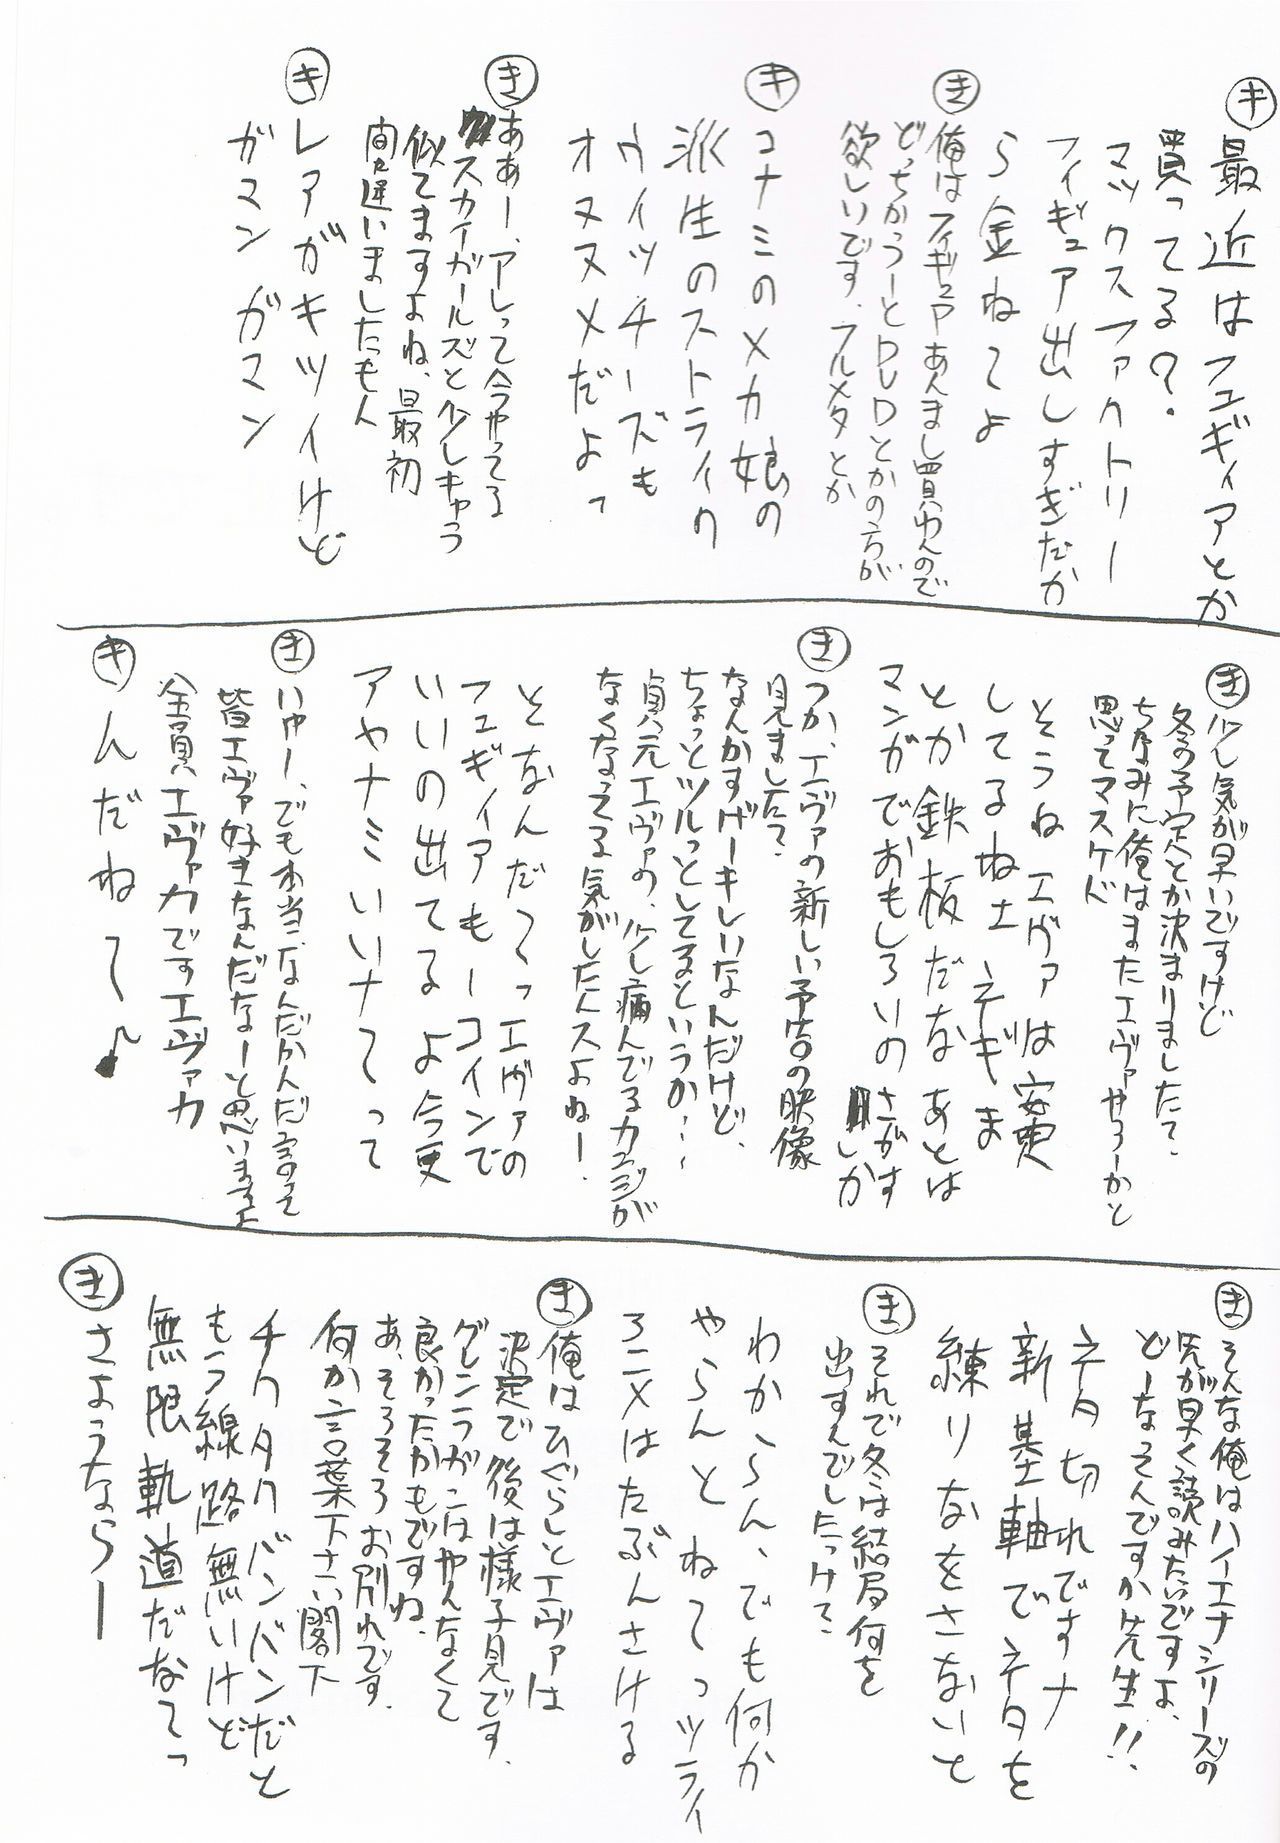 キ 最近はフュギィアとか
買ってる?
マックスファクトリー
フィギュア出しすぎだか
ら金ねてよ
き 俺はフィギュアあんまし買わんので
どっちかつーとDVDとかの方が
欲しいです、フルメタとか
キ コナミのメカ娘の
派生のストライク
ウィッチーズも
オヌヌメだよっ
き ああー、アレって今やってる
スカイガールズと少しキャラ
似てますよね、最初
間違いましたもん
キ レアがキツイけど
ガマンガマン
き 少し気が早いですけど
冬の予定とか決まりました?
ちなみに俺はまたエヴァやろーかと
思ってマスケド
そうねエヴァは安定
してるね土 ネギま
とか鉄板だなあとは
マンガでおもしろいのさがす
しか
き つか、エヴァの新しい予告の映像
見ました?
なんかすげーキレイなんだけど、
ちょっとツルっとしてるというか…
貞元エヴァの、少し病んでるカンジが
なくなってる気がしたんスよねー!
となんだてっエヴァの
フュギィアもーコインで
いいの出てるよ今更
アヤナミいいナてって
き いやー、でも本当、なんだかんだ言って
皆エヴァ好きなんだなーと思いますよ
全員エヴァ力ですエヴァ力
キ んだねて〜♪
き そんな俺はハイエナシリーズの
先が早く読みたいですよ、
どーなるんですか先生!!
ネタ切れですナ
新基軸でネタを
練りなをさないと
き それで冬は結局何を
出すんでしたっけ?
わからん、でも何か
やらんとねてっツライ
ろニメはたぶんさける
き 俺はひぐらしとエヴァは
決定で後は様子見です、
グレンラガンはやんなくて
良かったかもですね、
あ、そろそろお別れです、
何か言葉下さい閣下
チクタクバンバンだと
もう線路無いけど
無限軌道だなてっ
き さようならー